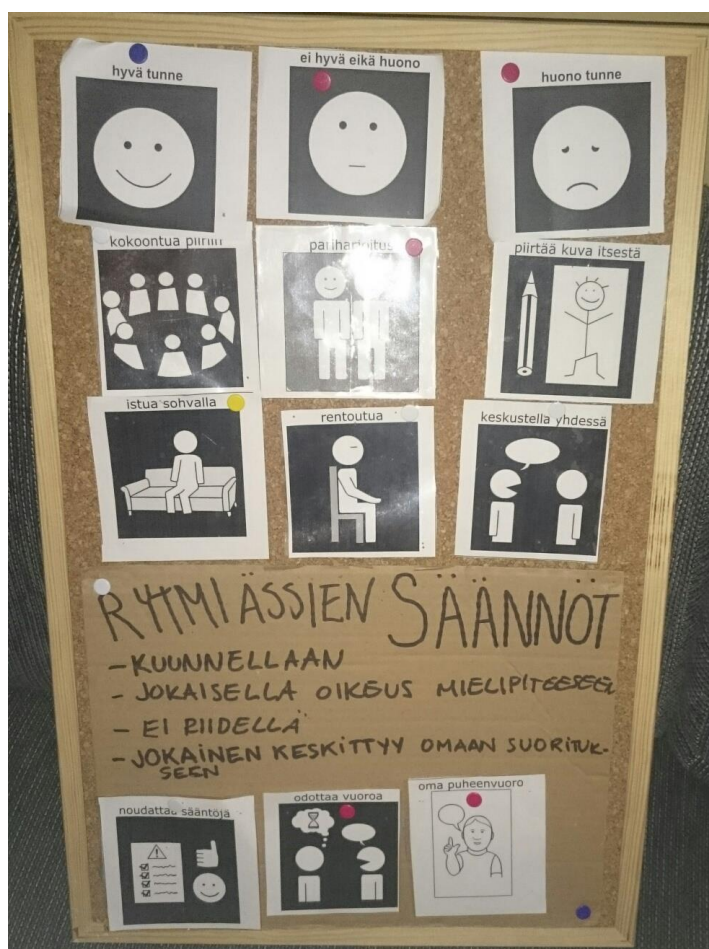 hyvä tunne
ei hyvä eikä huono
huono tunne
kokoontua piiriin
pariharjoitus
piirtää kuva itsestä
istua sohvalla
rentoutua
keskustella yhdessä
RYTMIÄSSIEN SÄÄNNÖT
- KUUNNELLAAN
- JOKAISELLA OIKEUS MIELIPITEESEEN
- EI RIIDELLÄ
- JOKAINEN KESKITTYY OMAAN SUORITUK-
SEEN
noudattaa sääntöjä
odottaa vuoroa
oma puheenvuoro